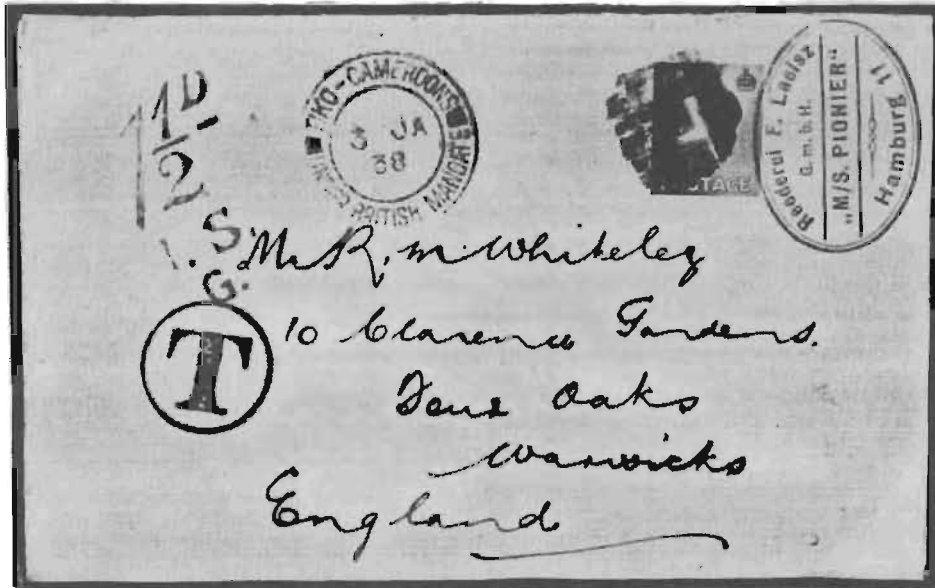 1½D.
S.
G.
TIKO-CAMEROONS
3 JA
38
UNDER BRITISH MANDATE
POSTAGE
Reederei F. Laeisz
G. m. b. H.
„M/S. PIONIER"
Hamburg 11
Mr R. M. Whiteley
T
10 Clarence Gardens.
Four Oaks
Warwicks
England